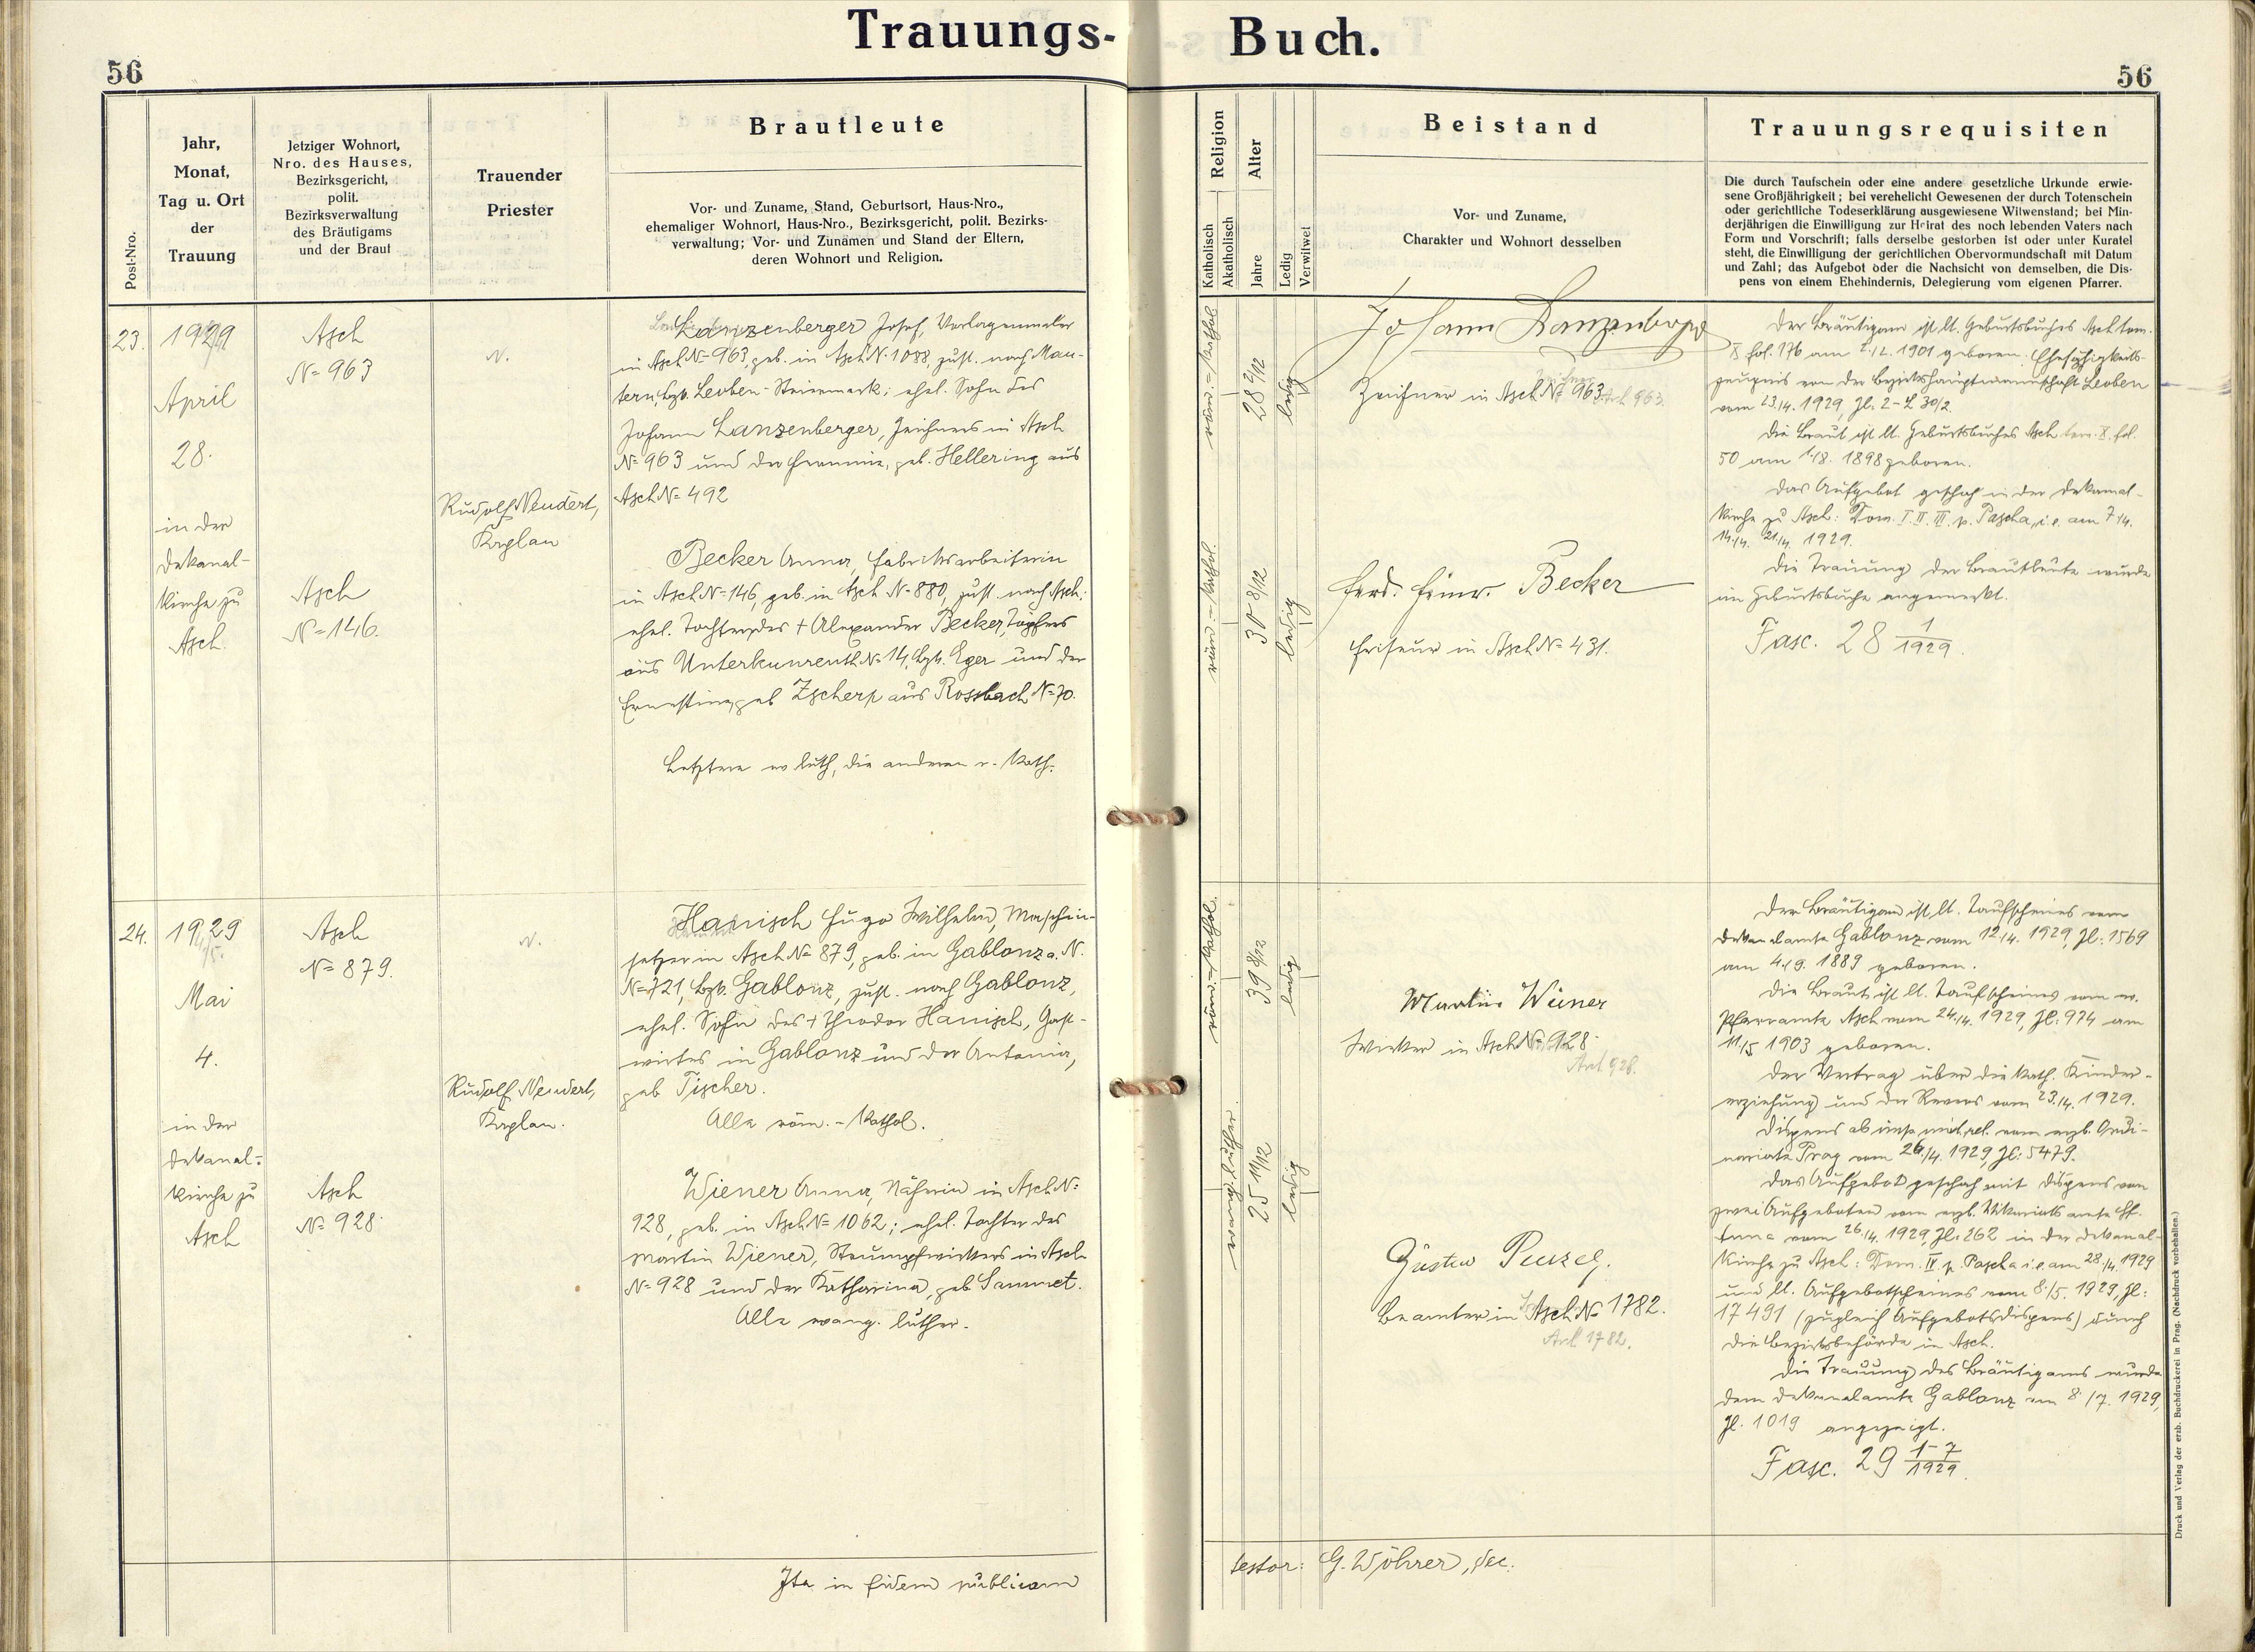 Trauungs-Buch.
56
56
Post-Nro.
Jahr,
Monat,
Tag u. Ort
der
Trauung
Jetziger Wohnort,
Nro. des Hauses,
Bezirksgericht,
polit.
Bezirksverwaltung
des Bräutigams
und der Braut
Trauender
Priester
Brautleute
Vor- und Zuname, Stand, Geburtsort, Haus-Nro.,
ehemaliger Wohnort, Haus-Nro., Bezirksgericht, polit. Bezirks-
verwaltung; Vor- und Zunamen und Stand der Eltern,
deren Wohnort und Religion.
Religion
Katholisch
Akatholisch
Alter
Jahre
Ledig
Verwitwet
Beistand
Vor- und Zuname,
Charakter und Wohnort desselben
Trauungsrequisiten
Die durch Taufschein oder eine andere gesetzliche Urkunde erwie-
sene Großjährigkeit; bei verehelicht Gewesenen der durch Totenschein
oder gerichtliche Todeserklärung ausgewiesene Witwenstand; bei Min-
derjährigen die Einwilligung zur Heirat des noch lebenden Vaters nach
Form und Vorschrift; falls derselbe gestorben ist oder unter Kuratel
steht, die Einwilligung der gerichtlichen Obervormundschaft mit Datum
und Zahl; das Aufgebot oder die Nachsicht von demselben, die Dis-
pens von einem Ehehindernis, Delegierung vom eigenen Pfarrer.
23.
1929
April
28.
in der
Dekanal-
kirche zu
Asch.
Asch
N= 963
Asch
N= 146.
N.
Rudolf Neudert,
Kaplan
Lanzenberger Josef, Vorlagenmaler
in Asch N= 963, geb. in Asch N. 1088 zust. nach Mau-
tern, Bzk. Leoben - Steiermark; ehel. Sohn des
Johann Lanzenberger, Zeichners in Asch
N= 963 und der Erminie, geb. Hellering aus
Asch N= 492
Becker Anna, Fabriksarbeiterin
in Asch N= 146, geb. in Asch N= 880, zust. nach Asch;
ehel. Tochter des + Alexander Becker, Töpfers
aus Unterkunreuth N= 14, Bzk. Eger und der
Ernestine, geb Zscherp aus Rossbach N= 70.
Letztere ev luth, die anderen r. kath.
röm.-kathol
28 2/12
ledig
röm.-kathol.
30 8/12
ledig
Johann Lanzenberger
Zeichner in Asch N= 963.
Asch 963.
Ferd. Heinr. Becker
Friseur in Asch N= 431.
Der Bräutigam ist lt. Geburtsbuches Asch tom.
X fol. 176 am 2./2. 1901 geboren. Ehefähigkeits-
zeugnis von der Bezirkshauptmannschaft Leoben
vom 23./4. 1929, Zl: 2-L 30/2.
Die Braut ist lt. Geburtsbuches Asch tom. X. fol.
50 am 1./8. 1898 geboren.
Das Aufgebot geschah in der Dekanal-
kirche zu Asch: Dom. I. II. III. p. Pascha, i. e. am 7./4.
14./4. 21./4. 1929.
Die Trauung der Brautleute wurde
im Geburtsbuche angemerkt.
Fasc. 28 1/1929.
24.
1929
Mai
4.
in der
Dekanal-
kirche zu
Asch
Asch
N= 879.
Asch
N= 928.
N.
Rudolf Neudert,
Kaplan.
Hanisch Hugo Wilhelm, Maschin-
setzer in Asch N= 879, geb. in Gablonz a. N.
N= 721, Bzk. Gablonz, zust. nach Gablonz,
ehel. Sohn des + Theodor Hanisch, Gast-
wirtes in Gablonz und der Antonia,
geb Tischer.
Alle röm.-kathol.
Wiener Anna, Näherin in Asch N=
928, geb. in Asch N= 1062; ehel. Tochter des
Martin Wiener, Strumpfwirkers in Asch
N= 928 und der Katharina, geb Sammet.
Alle evang. luther.
röm.-kathol.
39 8/12
ledig
evang. luther.
25 11/12
ledig
Martin Wiener
Wirker in Asch N= 928.
Asch 928.
Gustav Penzel.
Beamter in Asch N= 1782.
Asch 1782.
Der Bräutigam ist lt. Taufscheines vom
Dekanalamte Gablonz vom 12./4. 1929, Zl: 1569
am 4./9. 1889 geboren.
Die Braut ist lt. Taufscheines vom ev.
Pfarramte Asch vom 24./4. 1929, Zl: 974 am
11./5 1903 geboren.
Der Vertrag über die kath. Kinder-
erziehung und der Revers vom 23./4. 1929.
Dispens ab imp. mixt. rel. vom erzb. Ordi-
nariate Prag vom 26./4. 1929, Zl: 5479.
Das Aufgebot geschah mit Dispens von
zwei Aufgeboten vom erzb. Vikariatsamte
vom 26./4. 1929, Zl: 262 in der Dekanal-
kirche zu Asch: Dom. IV. p. Pascha i. e. am 28./4. 1929
und lt. Aufgebotscheines vom 8./5. 1929, Zl:
17491 (zugleich Aufgebotsdispens) durch
die Bezirksbehörde in Asch.
Die Trauung des Bräutigams wurde
dem Dekanalamte Gablonz am 8./7. 1929,
Zl. 1019 angezeigt.
Fasc. 29 1-7/1929.
Ita in fidem publicam
testor: G. Wöhrer, Dec.
Druck und Verlag der erzb. Buchdruckerei in Prag. (Nachdruck vorbehalten.)